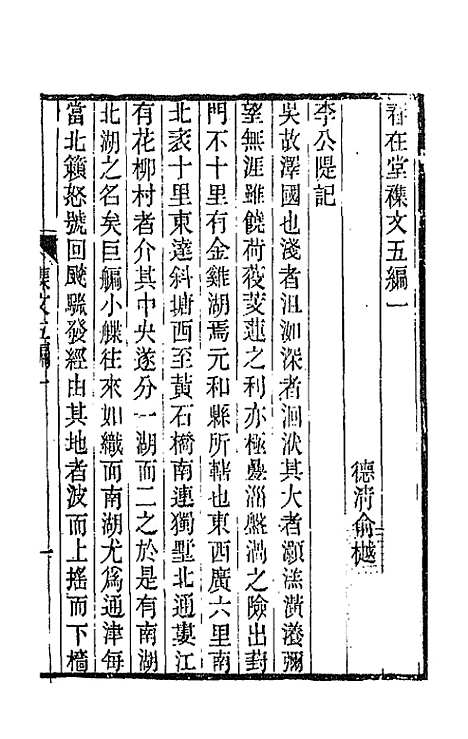 春在堂襍文五編一
德清俞樾
李公隄記
吳故澤國也淺者沮洳深者洄洑其大者灝溔潢瀁彌
望無涯雖饒荷芰菱蓮之利亦極㬥淄盤渦之險出葑
門不十里有金雞湖焉元和縣所轄也東西廣六里南
北袤十里東達斜塘西至黃石橋南連獨墅北通婁江
有花柳村者介其中央遂分一湖而二之於是有南湖
北湖之名矣巨艑小艓往來如織而南湖尤爲通津每
當北籟怒號回飇驟發經由其地者波而上搖而下檣
襍文五編一
一